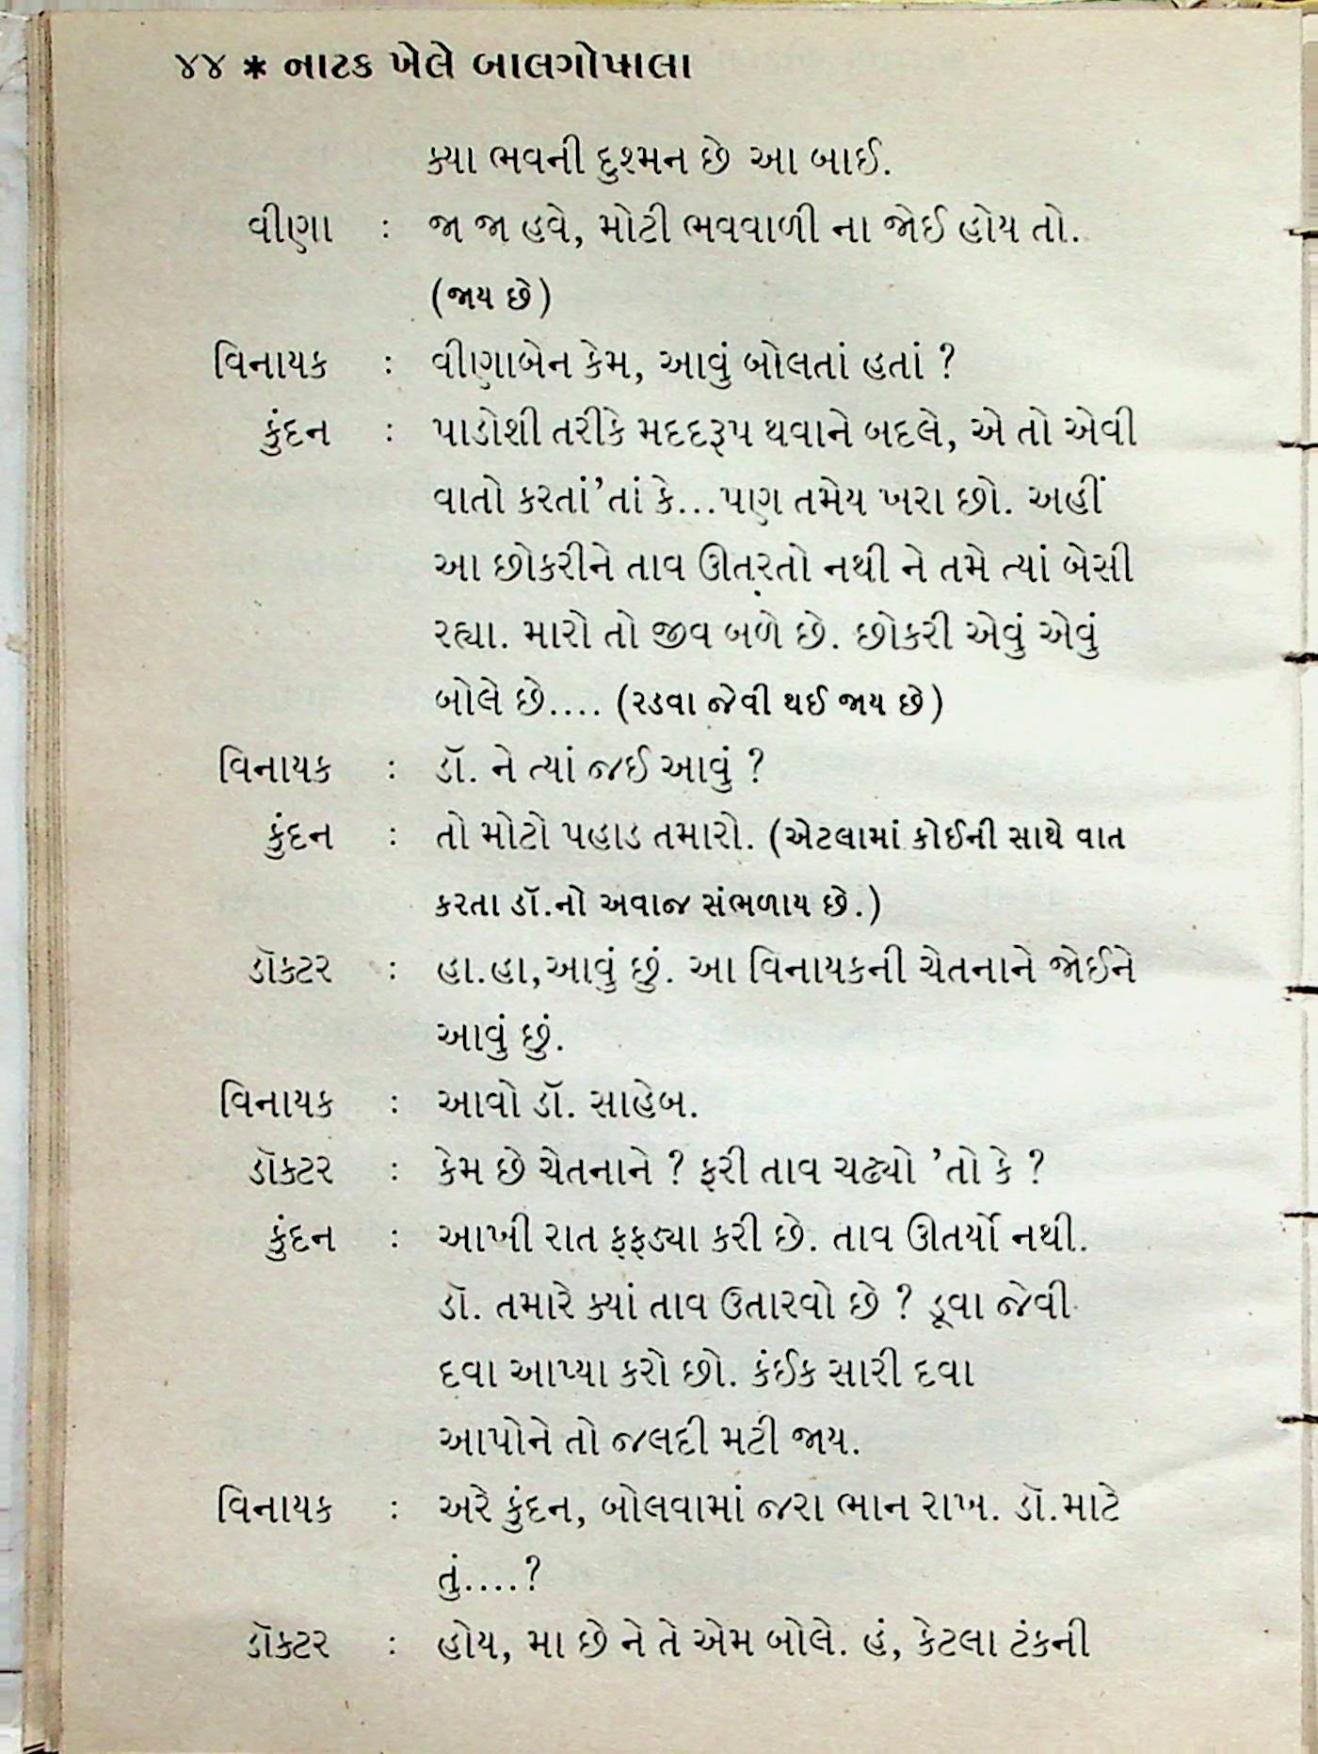 ૪૪ * નાટક ખેલે બાલગોપાલા
ક્યા ભવની દુશ્મન છે આ બાઈ.
વીણા : જા જા હવે, મોટી ભવવાળી ના જોઈ હોય તો.
(જાય છે)
વિનાયક : વીણાબેન કેમ, આવું બોલતાં હતાં ?
કુંદન : પાડોશી તરીકે મદદરૂપ થવાને બદલે, એ તો એવી
વાતો કરતાં’તાં કે...પણ તમેય ખરા છો. અહીં
આ છોકરીને તાવ ઊતરતો નથી ને તમે ત્યાં બેસી
રહ્યા. મારો તો જીવ બળે છે. છોકરી એવું એવું
બોલે છે.... (રડવા જેવી થઈ જાય છે)
વિનાયક : ડૉ. ને ત્યાં જઈ આવું ?
કુંદન : તો મોટો પહાડ તમારો. (એટલામાં કોઈની સાથે વાત
કરતા ડૉ.નો અવાજ સંભળાય છે.)
ડૉક્ટર : હા.હા,આવું છું. આ વિનાયકની ચેતનાને જોઈને
આવું છું.
વિનાયક : આવો ડૉ. સાહેબ.
ડૉક્ટર : કેમ છે ચેતનાને ? ફરી તાવ ચઢ્યો ’તો કે ?
કુંદન : આખી રાત ફફડ્યા કરી છે. તાવ ઊતર્યો નથી.
ડૉ. તમારે ક્યાં તાવ ઉતારવો છે ? ડૂવા જેવી
દવા આપ્યા કરો છો. કંઈક સારી દવા
આપોને તો જલદી મટી જાય.
વિનાયક : અરે કુંદન, બોલવામાં જરા ભાન રાખ. ડૉ.માટે
તું....?
ડૉક્ટર : હોય, મા છે ને તે એમ બોલે. હં, કેટલા ટંકની